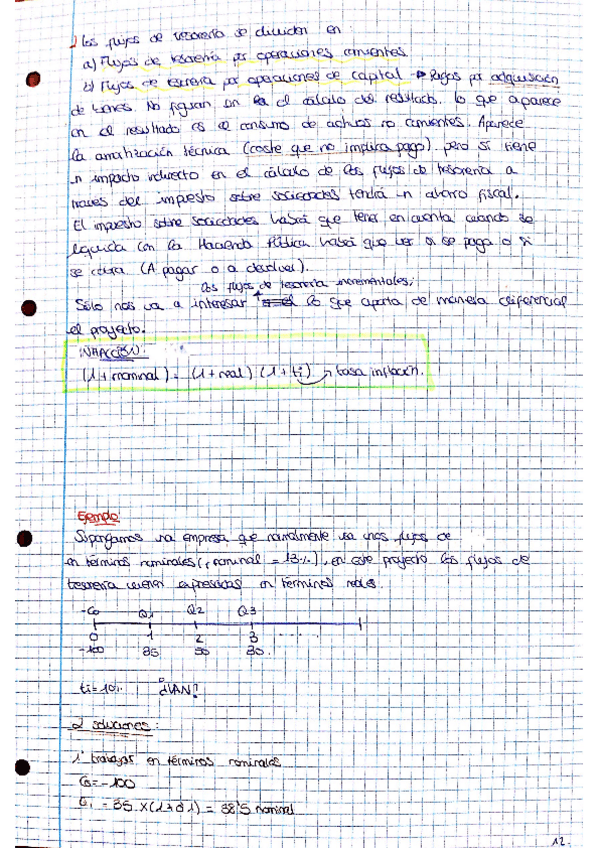 Los flujos de tesorería se dividen en:
a) Flujos de tesorería por operaciones corrientes
b) Flujos de tesorería por operaciones de capital → Pagos por adquisición
de bienes. No figuran en el cálculo del resultado. lo que aparece
en el resultado es el consumo de activos no corrientes. Aparece
la amortización técnica (coste que no implica pago). pero sí tiene
un impacto indirecto en el cálculo de los flujos de tesorería a
traves del impuesto sobre sociedades tendrá un ahorro fiscal.
El impuesto sobre sociedades habrá que tener en cuenta cuando se
liquida con la Hacienda Pública habrá que ver si se paga o si
se cobra (A pagar o a devolver).
los flujos de tesorería incrementales;
Sólo nos va a interesar lo que aporta de manera diferencial
el proyecto.
INFLACIÓN
(1+nominal) = (1+real) (1+ti) → tasa inflación.
Ejemplo
Supongamos una empresa que normalmente usa unos flujos de
en términos nominales (r nominal = 13%), en este proyecto los flujos de
tesorería vienen expresados en términos reales.
-Co Q1 Q2 Q3
0 1 2 3 ....
-100 35 50 30.
ti=10% ¿VAN?
2 soluciones:
1º trabajar en términos nominales
Co = -100
C1 = 35 x (1+0'1) = 38'5 nominal
12.